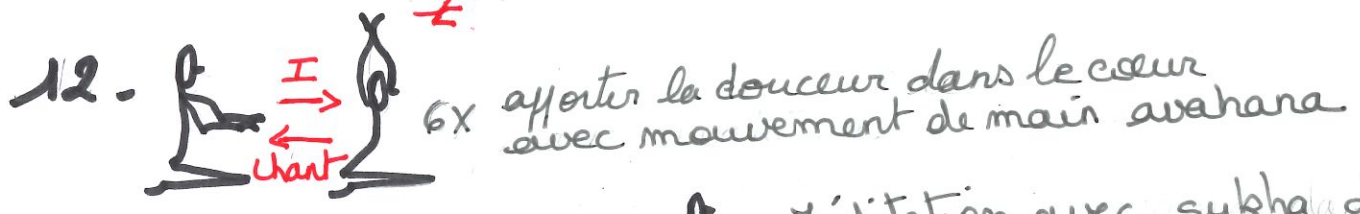 12.
I
chant
6x
apporter la douceur dans le cœur
avec mouvement de main avahana
avec sukha